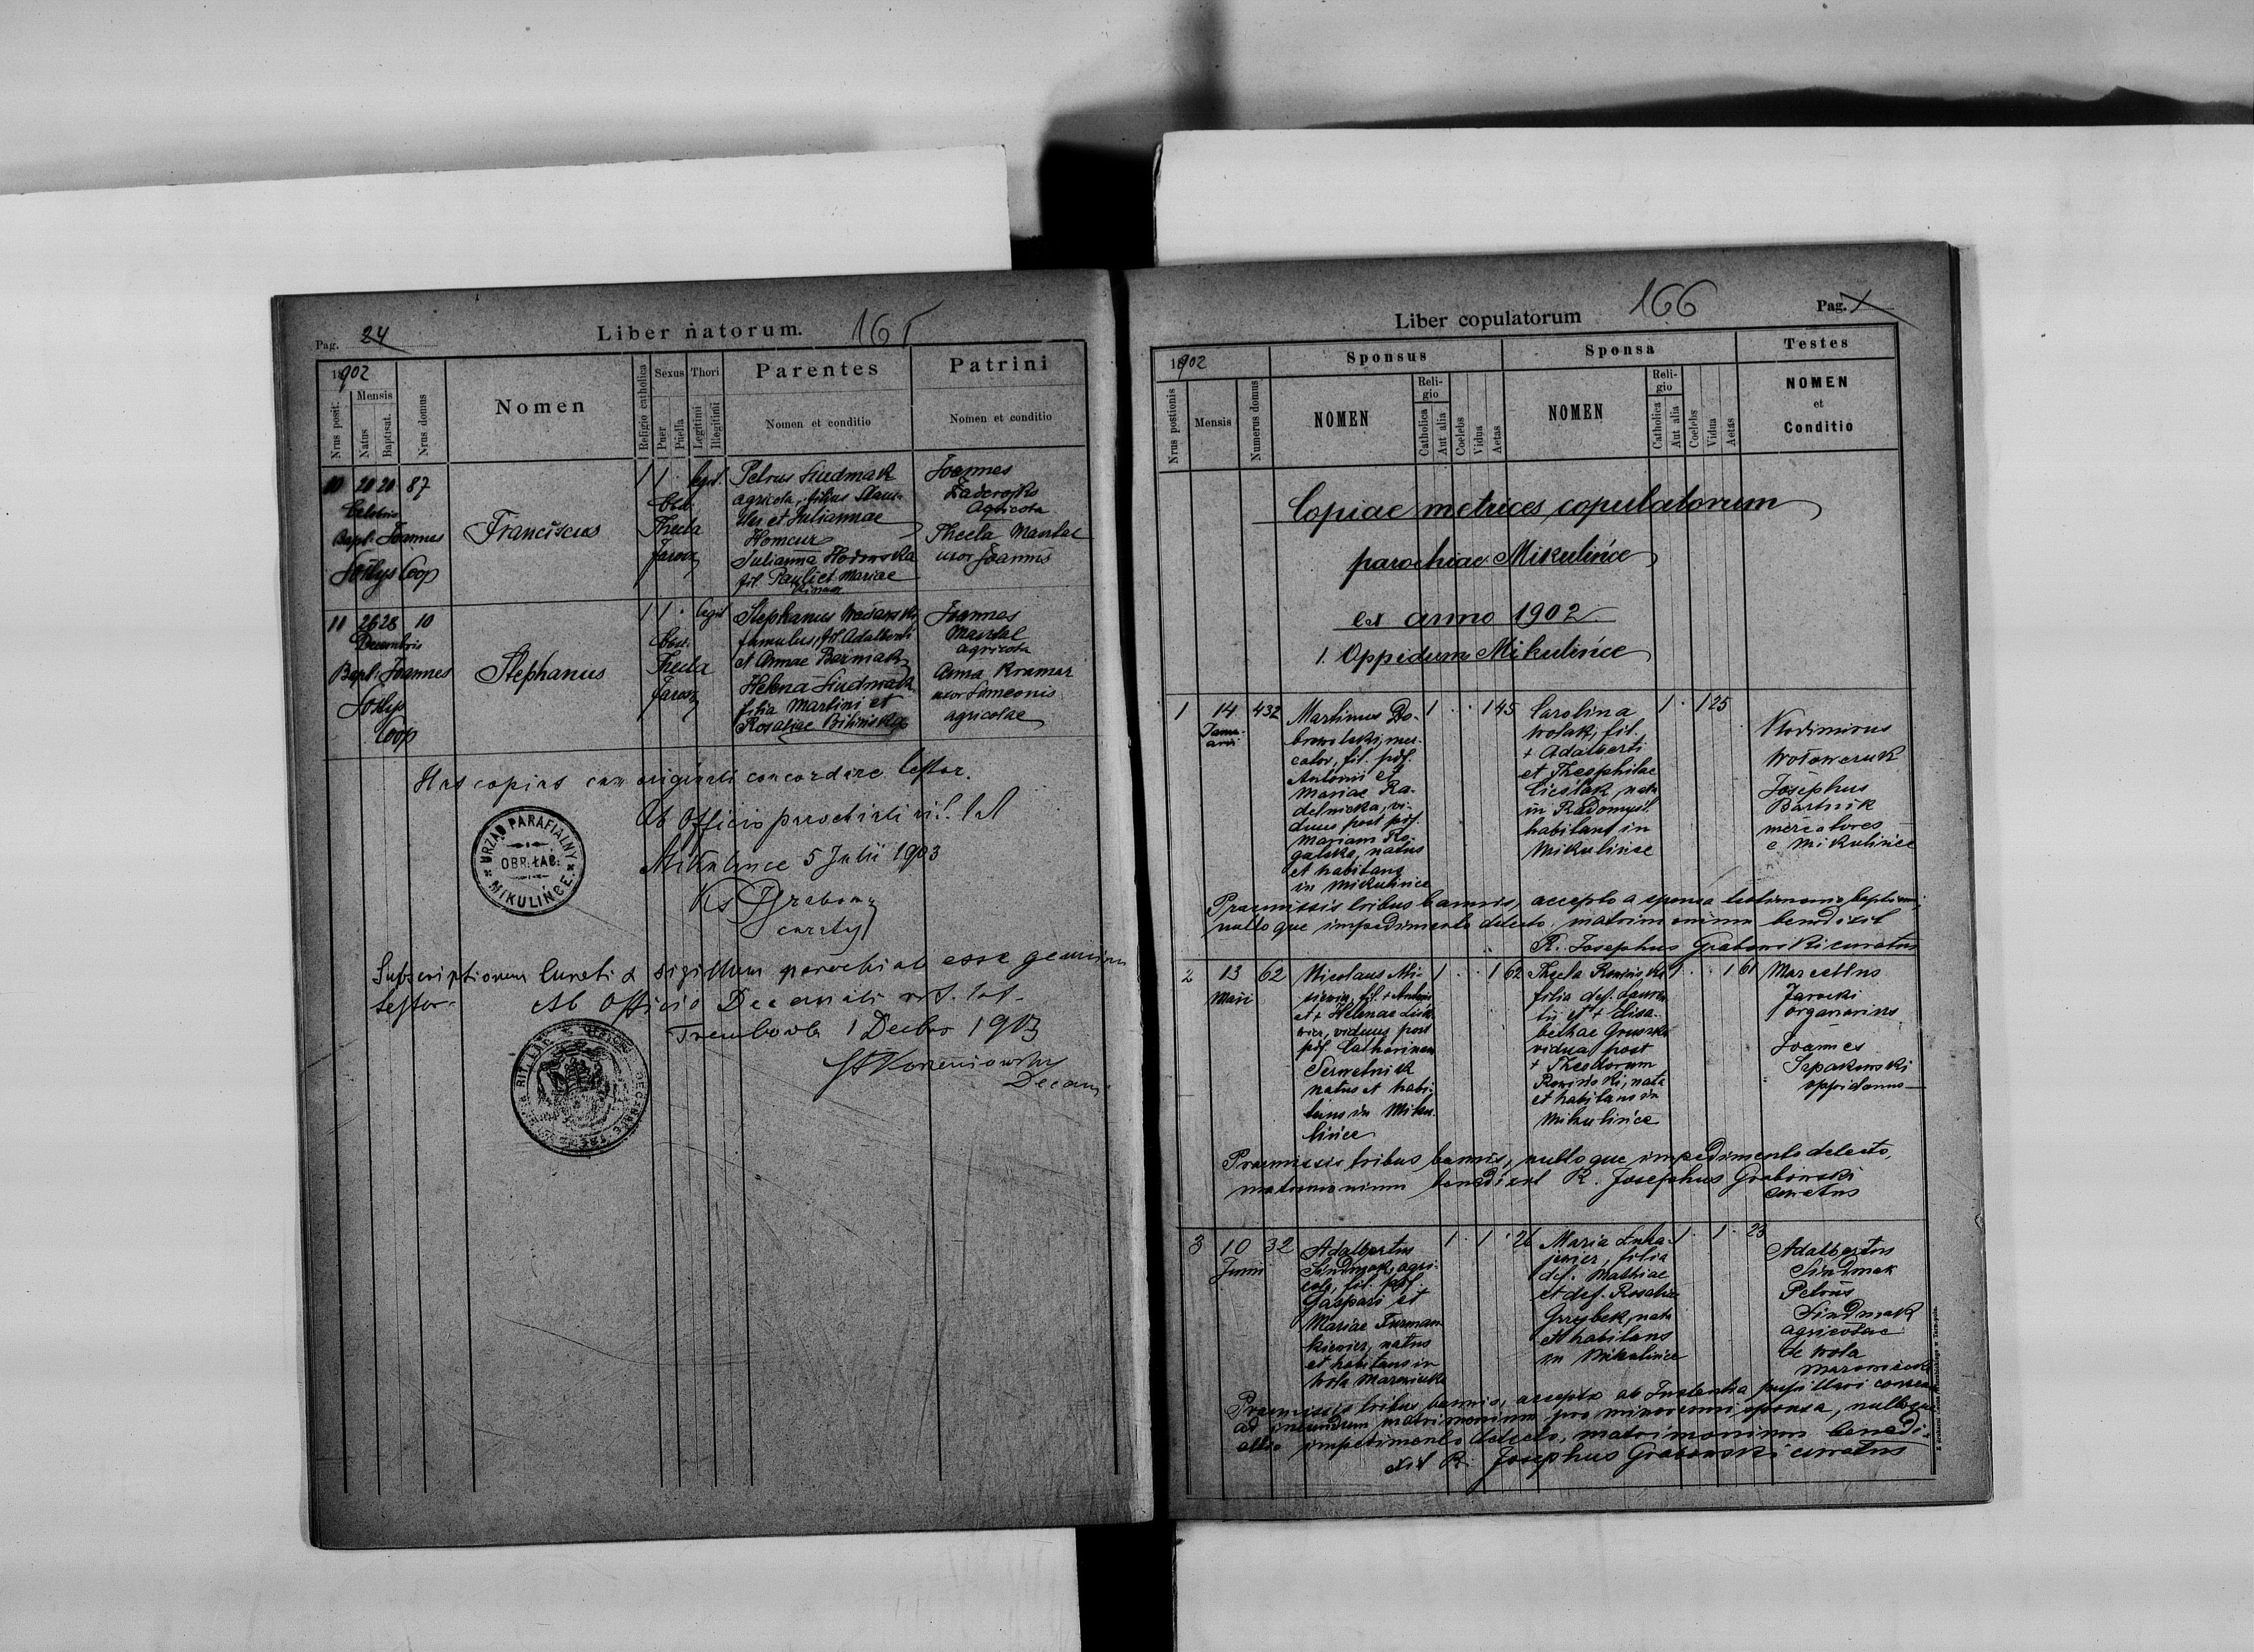 Pag. 24
Liber natorum.
165
1902
Nrus posit.
Mensis
Natus
Baptisat.
Nrus domus
Nomen
Religio catholica
Sexus
Puer
Puella
Thori
Legitimi
Illegitimi
Parentes
Nomen et conditio
Patrini
Nomen et conditio
10 20 20 87
Bapt. Joannes
Coop
Franciscus
1 1 . legit.
Obst.
Thecla
Jarosz
Petrus Sindmak
agricola, filius
et Juliannae
Julianna
fil. Pauli et Mariae
Joannes
Agricola
Thecla Mandal
uxor Joannis
11 26 28 10
Decembris
Bapt. Joannes
Coop
Stephanus
1 1 . legit
Obst.
Thecla
Jarosz
Stephanus
famulus, fil. Adalberti
et Annae
Helena Sindmak
filia Martini et
Rosaliae
Joannes
Mandal
agricola
Anna Kramar
uxor Simeonis
agricolae
Has copias cum originali concordare testor.
Ab Officio parochiali rit. lat
Mikulince 5 Julii 1903
URZĄD PARAFIALNY
OBR. ŁAĆ.
MIKULIŃCE.
Subscriptionem Curati & sigillum parochiale esse genuinum
testor.
Ab Officio Decanali rit. lat.
Trembowla 1 Decbr 1903
Decanus
Liber copulatorum
166
Pag. 1
1902
Nrus postionis
Mensis
Numerus domus
Sponsus
NOMEN
Religio
Catholica
Aut alia
Coelebs
Vidua
Aetas
Sponsa
NOMEN
Religio
Catholica
Aut alia
Coelebs
Vidua
Aetas
Testes
NOMEN
et
Conditio
Copiae metrices copulatorum
parochiae Mikulińce
ex anno 1902
1. Oppidum Mikulińce
1 14 432
Januarii
Martinus Do-
browolski, mer-
cator, fil. pdf.
Antonii et
Mariae Ra-
delnicka, vi-
duus post pdf.
Mariam Ro-
galska, natus
et habitans
in Mikulińce
1 . . 1 45
Carolina
Wolak, fil.
+ Adalberti
et Theophilae
Cieślak, nata
in Radomyśl
habitans in
Mikulińce
1 . 1 25
Wlodimirus
Wołowczuk
Josephus
Bartnik
mercatores
e Mikulińce
Praemissis tribus bannis, accepto a sponsa testimonio baptismi,
nulloque impedimento detecto, matrimonium benedixit
R. Josephus Grabowski curatus
2 13 62
Maii
Nicolaus Mi-
et + Helenae
viduus post
pdf. Catharinam
Serwetnik
natus et habi-
tans in Miku-
lińce
1 . . 1 62
Thecla
filia def. Lauren-
tii et + Elisa-
bethae
vidua post
+ Theodorum
nata
et habitans in
Mikulińce
1 . . 1 61
Marcellus
Jarocki
organarius
Joannes
Szpakowski
oppidanus
Praemissis tribus bannis, nulloque impedimento detecto,
matrimonium benedixit R. Josephus Grabowski
curatus
3 10 32
Junii
Adalbertus
Sindmak, agri-
cola, fil. pdf.
Gaspari et
Mariae Furman-
kiewicz, natus
et habitans in
Wola Mazowiecka
1 . 1 . 26
Maria Łuka-
siewicz, filia
def. Mathiae
et def. Rosaliae
Grzybek, nata
et habitans
in Mikulińce
1 . 1 . 23
Adalbertus
Sindmak
Petrus
Sindmak
agricolae
de Wola
Mazowiecka
Praemissis tribus bannis, accepto ab Instantia pupillari consensu
ad ineundum matrimonium pro minorenni sponsa, nulloque
alio impedimento detecto, matrimonium benedi-
xit R. Josephus Grabowski curatus